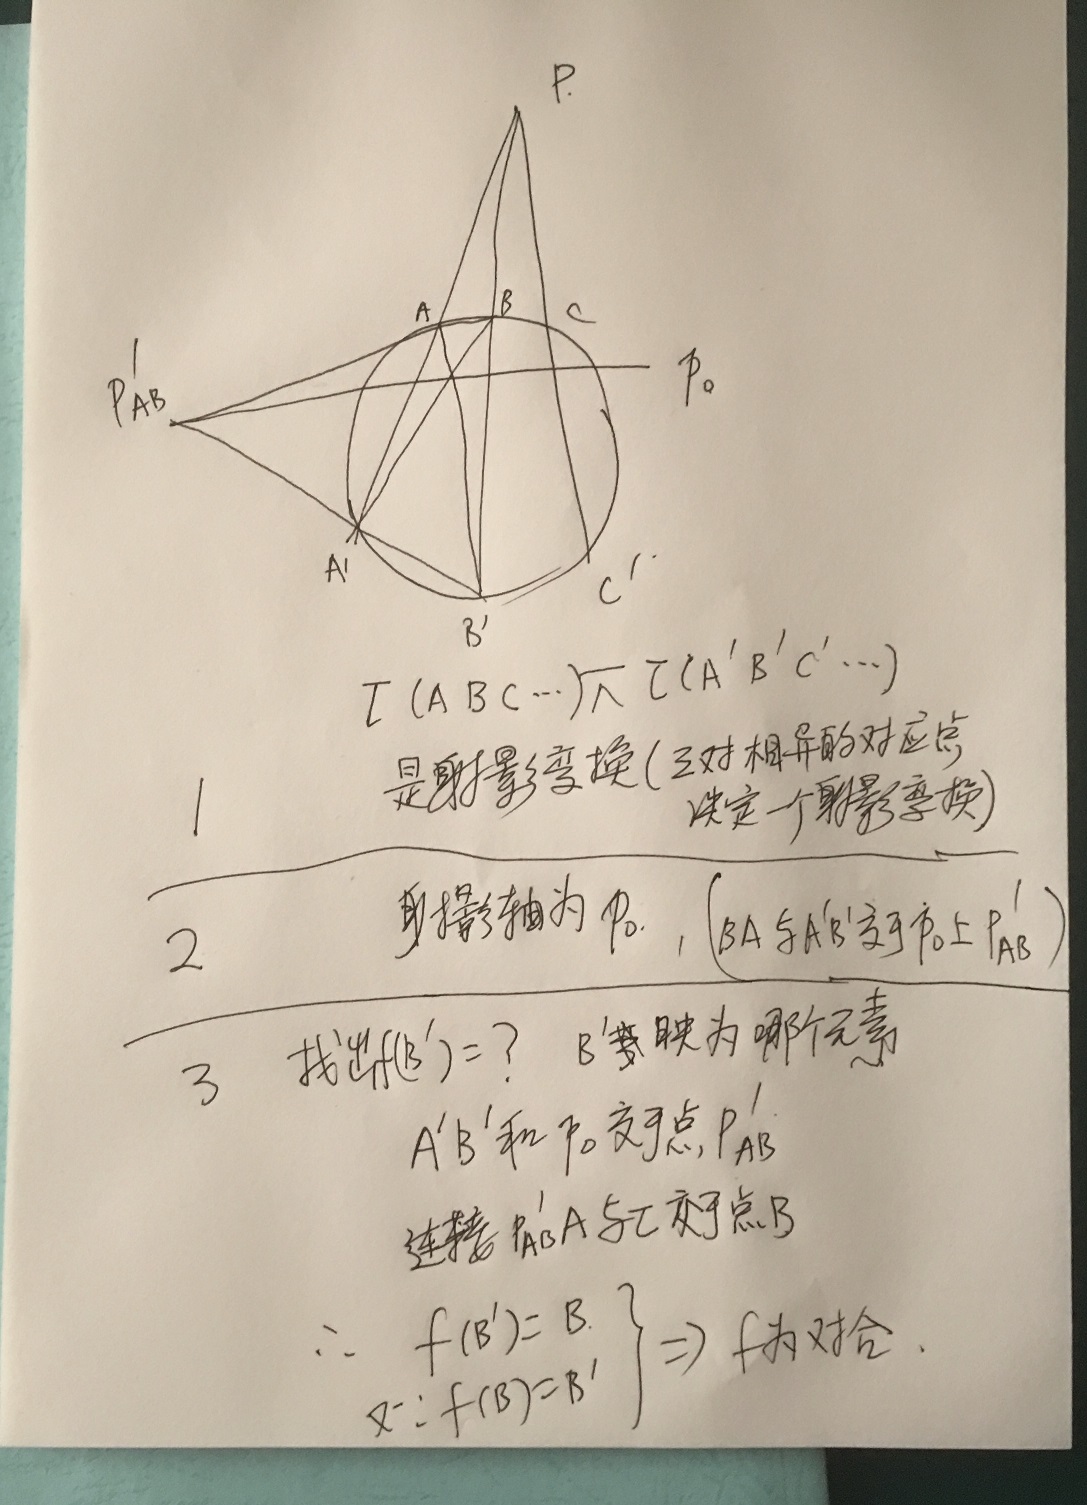 P.
A
B
C
P'AB
p₀
A'
B'
C'
τ(ABC…)⊼τ(A'B'C'…)
1 是射影变换(三对相异的对应点
决定一个射影变换)
2 射影轴为p₀.,(BA与A'B'交于p₀上P'AB)
3 找出f(B')=? B'映为哪个元素
A'B'和p₀交于点P'AB
连接P'AB A与τ交于点B
∴ f(B')=B.
又∵f(B)=B' } ⇒ f为对合.